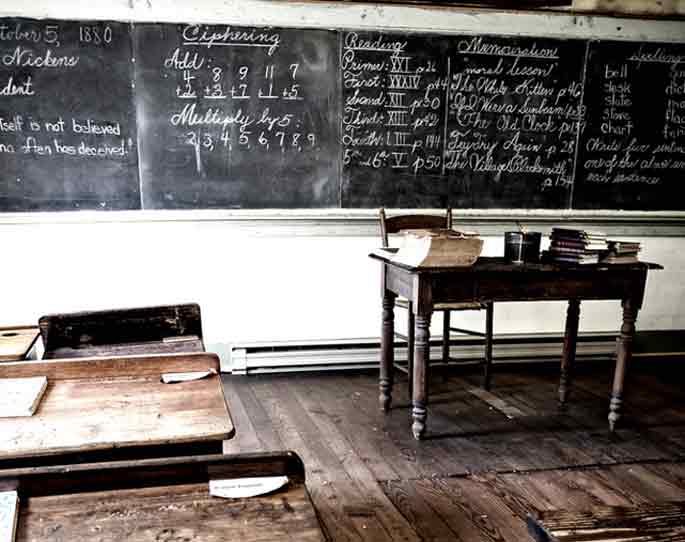 tober 5, 1880
Nickens
dent
tself is not believed
often has deceived."
Ciphering
Add:
4 8 9 11 7
+2 +3 +7 +1 +5
Multiply by 5:
2, 3, 4, 5, 6, 7, 8, 9
Reading
Primer: XVI p26
First: XXXIV p44
Second: p30
Third: XIII p42
Fourth: LIII p144
5th - 6th: V p50
Memorization
"moral lesson"
The White Kitten p46
If I Were a Sunbeam p53
The Old Clock p137
Try, Try Again p 28
the Village Blacksmith
p 154
Spelling
bell
desk
slate
stove
chart
Write five senten
one of the above
each sentence.